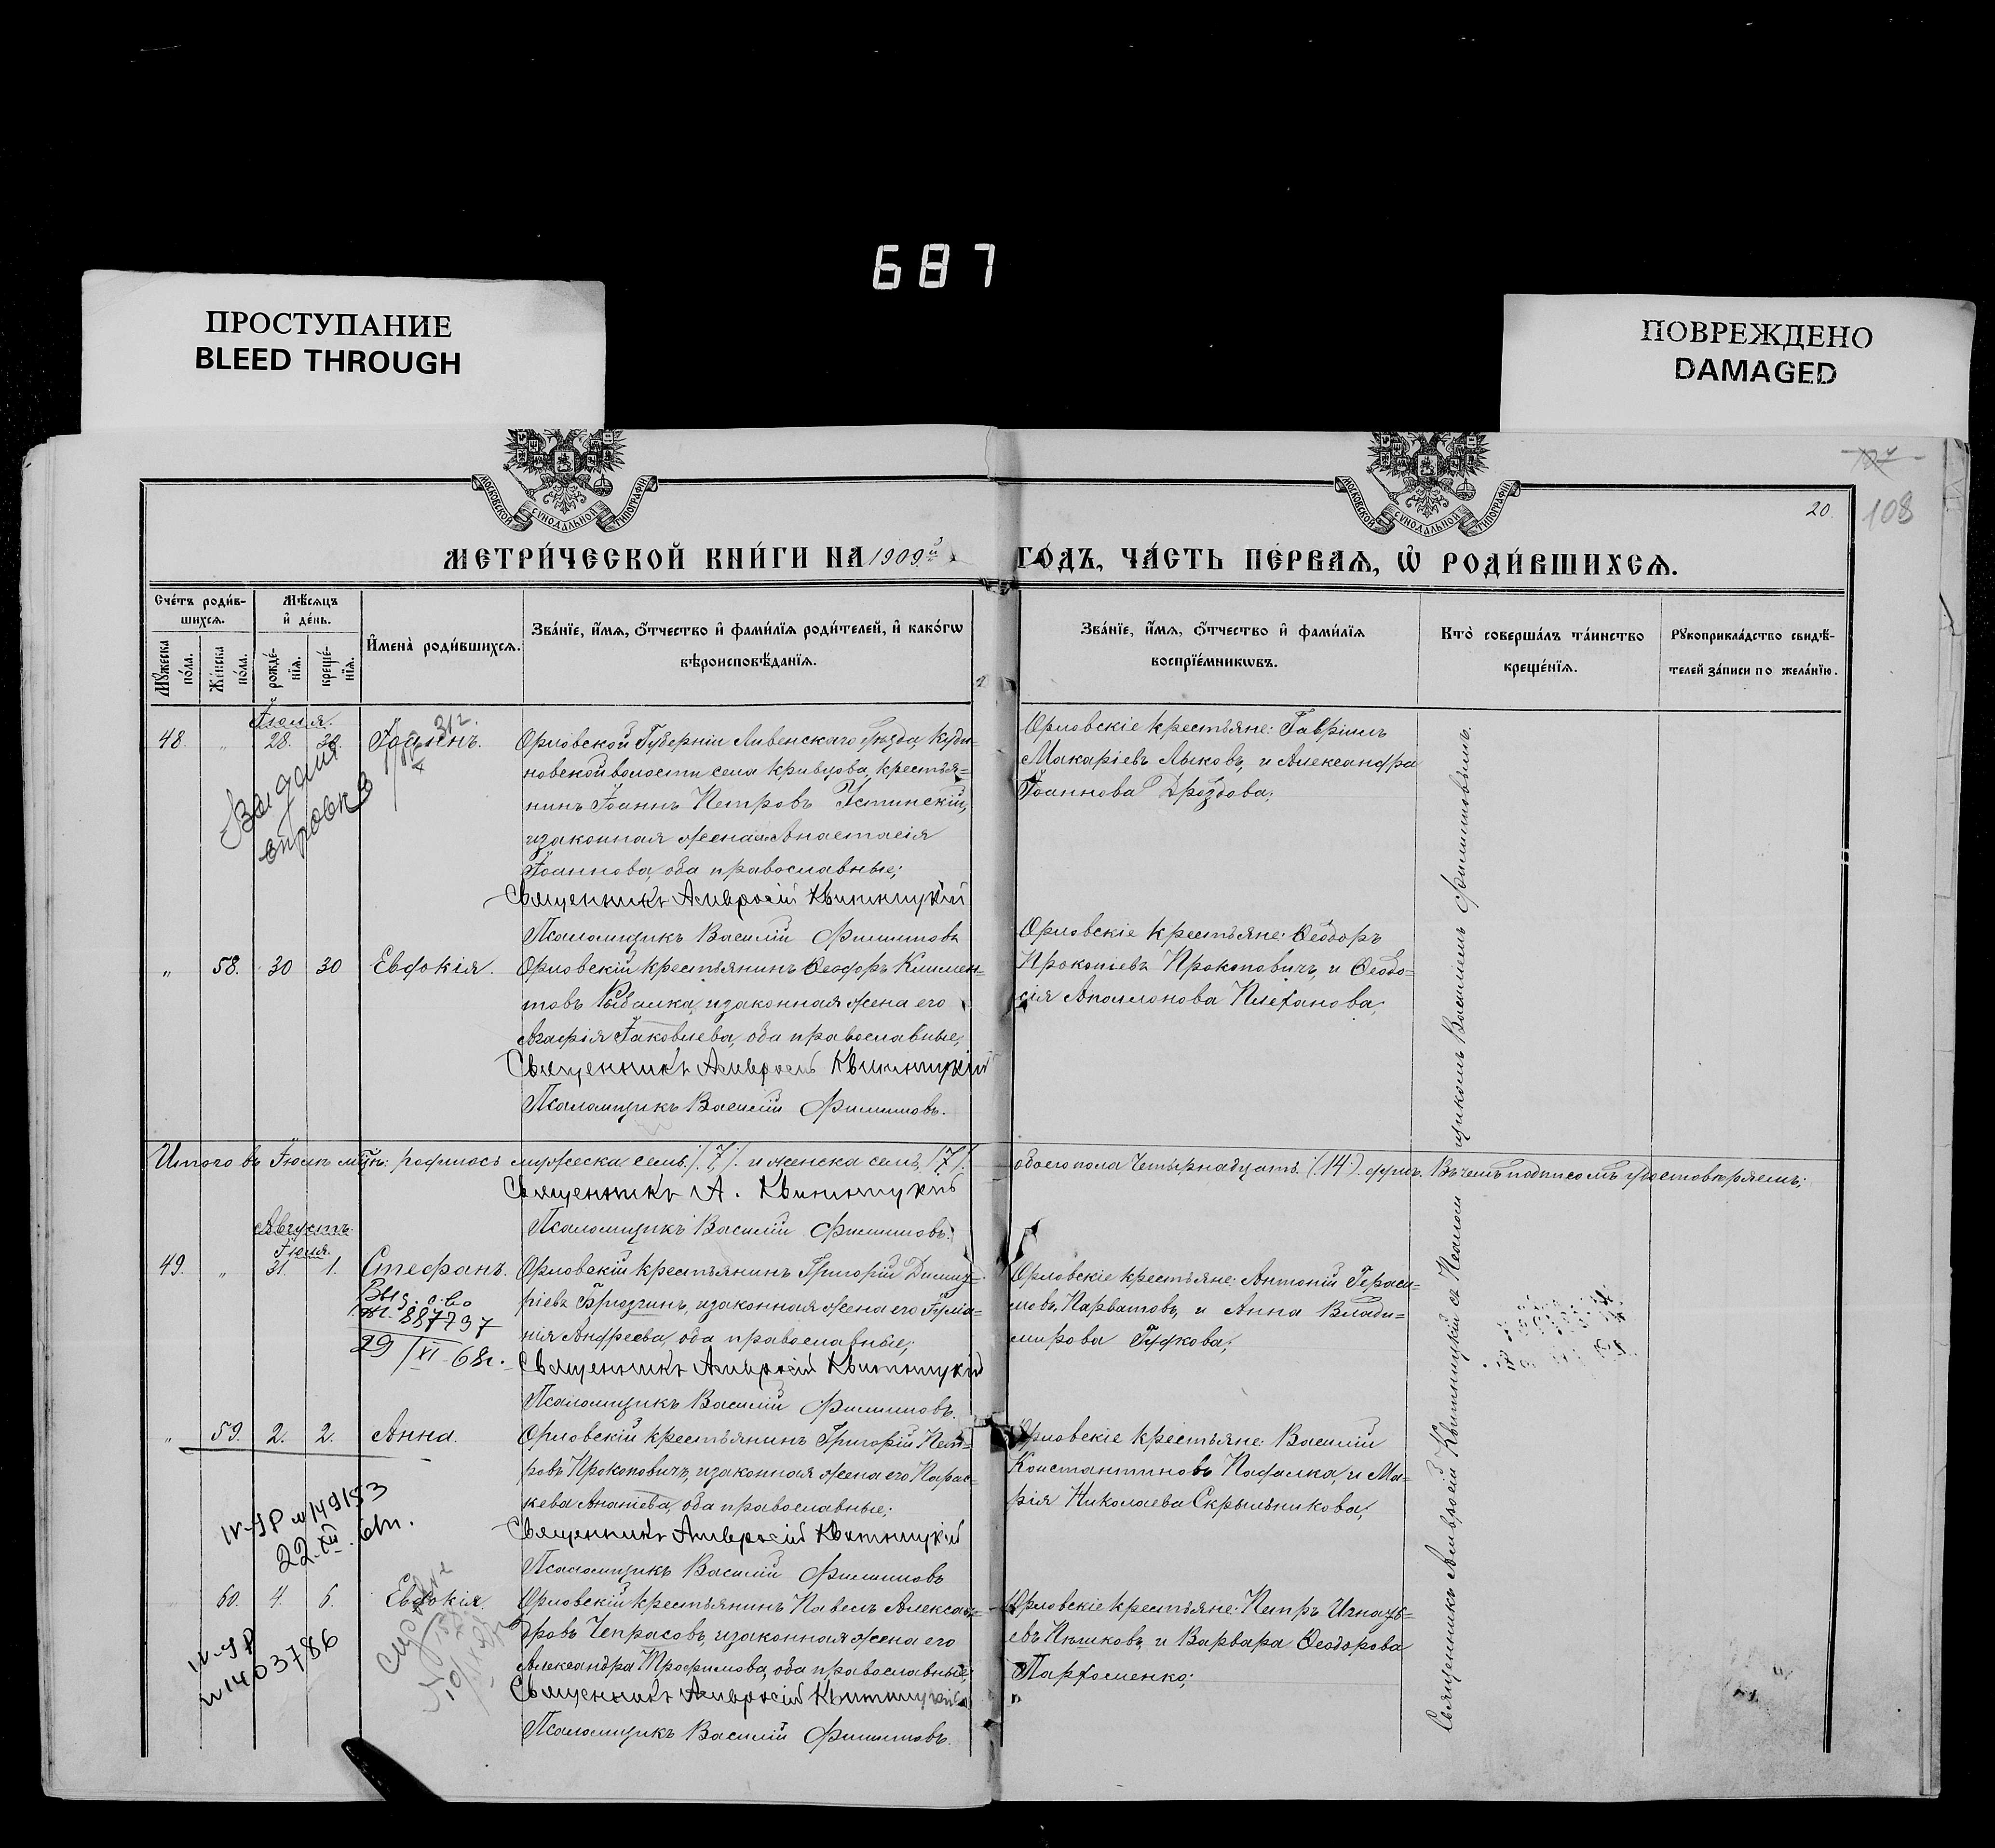 687
ПРОСТУПАНИЕ
BLEED THROUGH
ПОВРЕЖДЕНО
DAMAGED
МОСКОВСКОЙ СѴНОДАЛЬНОЙ ТИПОГРАФІИ
МОСКОВСКОЙ СѴНОДАЛЬНОЙ ТИПОГРАФІИ
20.
108
МЕТРИ́ЧЕСКОЙ КНИ́ГИ НА 1909й
ГО́ДЪ, ЧА́СТЬ ПЕ́РВАѦ, Ѡ҆ РОДИ́ВШИХСѦ.
Сче́тъ роди́в-
шихсѧ.
Мѣ́сѧцъ
и҆ де́нь.
Мꙋ́жеска по́ла.
Же́нска по́ла.
рожде́-
нїѧ.
креще́-
нїѧ.
И҆мена̀ роди́вшихсѧ.
Зва́нїе, и҆́мѧ, ѻ҆́тчество и҆ фами́лїѧ роди́телей, и҆ како́гѡ
вѣроисповѣ́данїѧ.
Зва́нїе, и҆́мѧ, ѻ҆́тчество и҆ фами́лїѧ
воспрїе́мникѡвъ.
Кто̀ соверша́лъ та́инство
креще́нїѧ.
Рꙋкоприкла́дство свидѣ́-
телей за́писи по жела́нїю.
Іюля.
48. " 28. 30.
Выдана
справка
Орловской Губерніи Ливенскаго Уѣзда, Куди-
новской волости села Кривцова, крестья-
нинъ Іоаннъ Петровъ Устинскій,
и законная жена его Анастасія
Іоаннова, оба православные;
Священникъ Амвросій Квитницкій
Псаломщикъ Василій Филиповъ
Орловскіе крестьяне: Гавріилъ
Макаріевъ Лыковъ, и Александра
Іоаннова Дроздова;
" 58. 30 30 Евдокія.
Орловскій крестьянинъ Ѳеодоръ Климен-
товъ Рыбалка, и законная жена его
Агафія Іаковлева, оба православные;
Священникъ Амвросій Квитницкій
Псаломщикъ Василій Филиповъ.
Орловскіе крестьяне: Ѳеодоръ
Прокопіевъ Прокоповичъ, и Ѳеодо-
сія Аполлонова Плеханова;
Итого въ Іюлѣ м-цѣ: родилось мужеска семь /7/. и женска семь, /7/.
обоего пола Четырнадцать (14) душъ. Въ чемъ подписомъ удостовѣряемъ;
Священникъ А. Квитницкій
Псаломщикъ Василій Филиповъ.
Августъ.
Іюля.
49. " 31. 1. Стефанъ.
Выд. с-во
887737
29/XI-68г.
Орловскій крестьянинъ Григорій Димит-
ріевъ Брюдгинъ, и законная жена его Іуліа-
нія Андреева, оба православные;
Священникъ Амвросій Квитницкій
Псаломщикъ Василій Филиповъ.
Орловскіе крестьяне: Антоній Гераси-
мовъ Парватовъ, и Анна Влади-
мирова Гудкова;
" 59. 2. 2. Анна.
IV-УР №149153
22.XII.61г.
Орловскій крестьянинъ Григорій Пет-
ровъ Прокоповичъ, и законная жена его Парас-
кева Ананіева, оба православные;
Священникъ Амвросій Квитницкій
Псаломщикъ Василій Филиповъ
Орловскіе крестьяне: Василій
Константиновъ Падалка, и Ма-
рія Николаева Скрыльникова;
60. 4. 6. Евдокія.
IV-УР
№1403786
Орловскій крестьянинъ Павелъ Алексан-
дровъ Чепрасовъ, и законная жена его
Александра Трофимова, оба православные;
Священникъ Амвросій Квитницкій
Псаломщикъ Василій Филиповъ.
Орловскіе крестьяне: Петръ Игнатъ-
евъ Пюшковъ, и Варвара Ѳеодорова
Пархоменко;
Священникъ Амвросій Квитницкій съ Псаломщикомъ Василіемъ Филиповымъ.